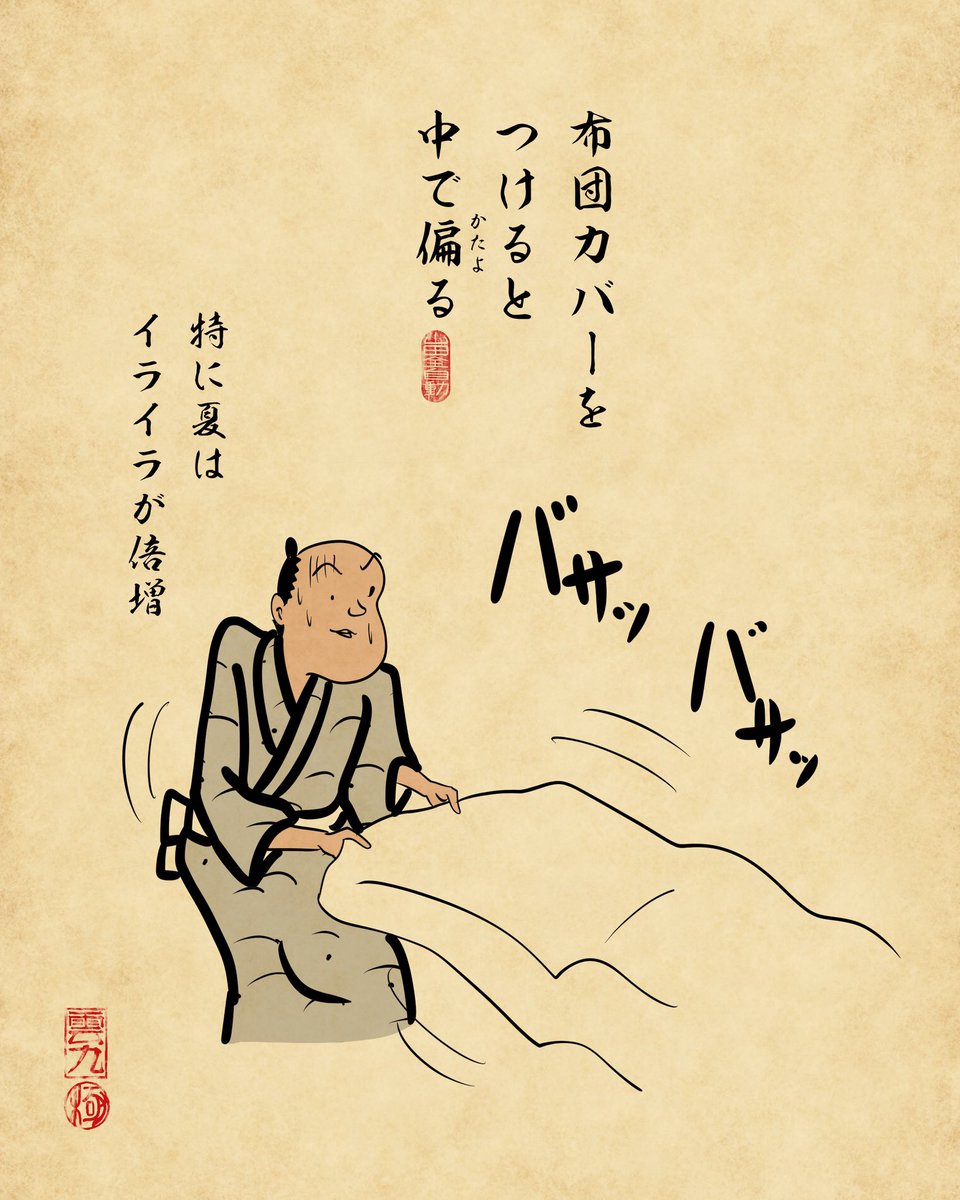 布団カバーを
つけると
中で偏る
かたよ
特に夏は
イライラが倍増
バサッ
バサッ